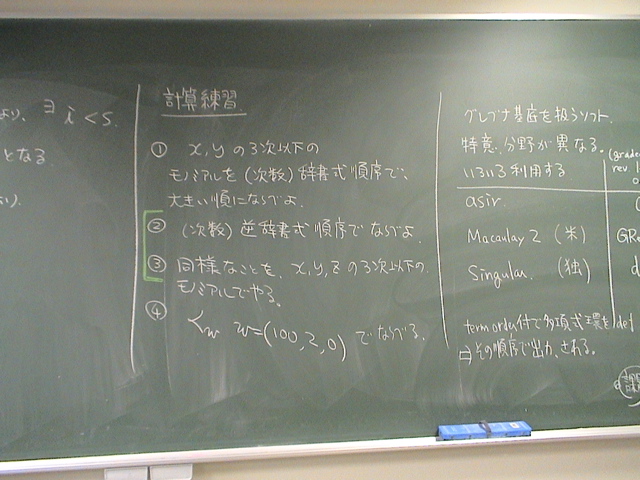 より、∃ i < s.
となる
計算練習.
① x,yの3次以下の
モノミアルを(次数)辞書式順序で、
大きい順にならべよ.
② (次数)逆辞書式順序でならべよ.
③ 同様なことを、x,y,zの3次以下の
モノミアルでやる。
④ <w w=(100,2,0)でならべる.
グレブナ基底を扱うソフト.
特意、分野が異なる。
いろいろ利用する
asir.
Macaulay 2 (米)
Singular. (独)
term order付で多項式環を def
⇒その順序で出力される。
(grade
rev. l
GR
d